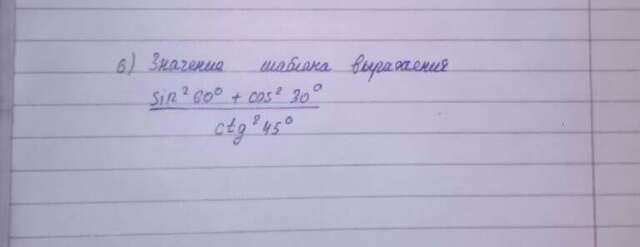 6) Значение шаблона выражения
sin² 60° + cos² 30°
ctg² 45°